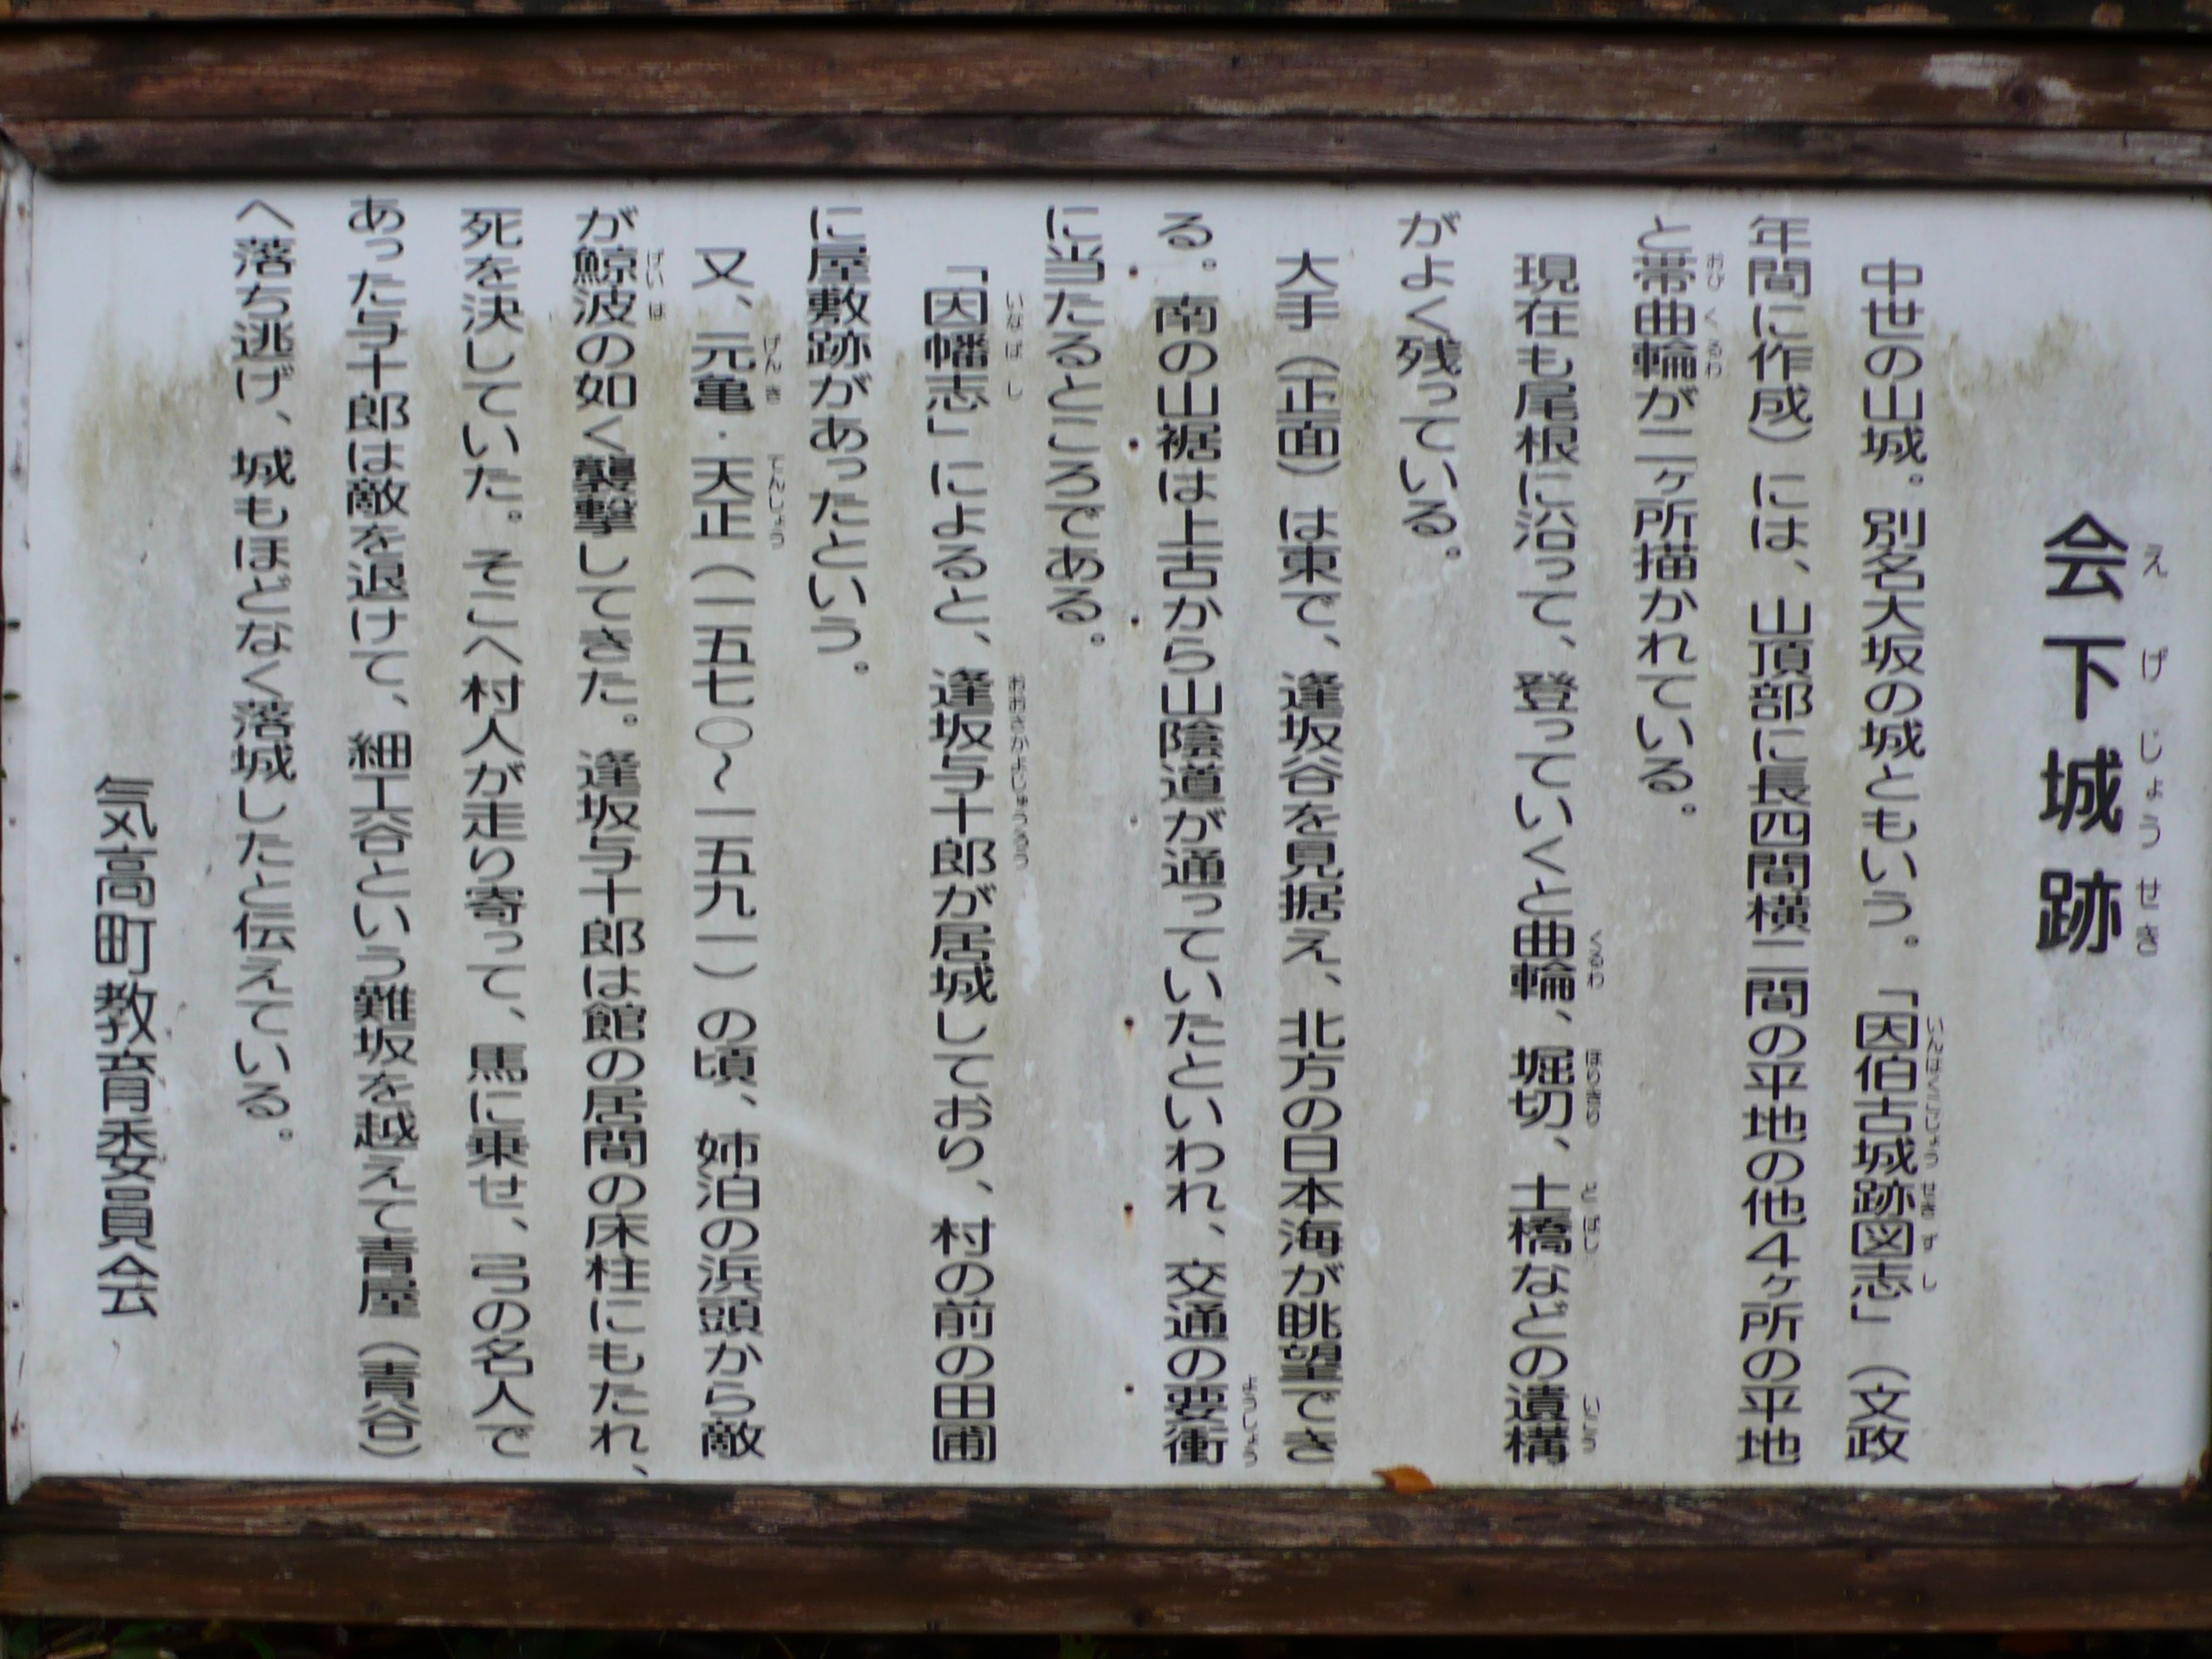 会下城跡
えげじょうせき
中世の山城。別名大坂の城ともいう。「因伯古城跡図志」（文政
いんはくこじょうせきずし
年間に作成）には、山頂部に長四間横二間の平地の他4ヶ所の平地
と帯曲輪が二ヶ所描かれている。
おびくるわ
現在も尾根に沿って、登っていくと曲輪、堀切、土橋などの遺構
くるわ ほりきり どばし いこう
がよく残っている。
大手（正面）は東で、逢坂谷を見据え、北方の日本海が眺望でき
る。南の山裾は上古から山陰道が通っていたといわれ、交通の要衝
ようしょう
に当たるところである。
「因幡志」によると、逢坂与十郎が居城しており、村の前の田圃
いなばし おおさかよじゅうろう
に屋敷跡があったという。
又、元亀・天正（一五七〇～一五九一）の頃、姉泊の浜頭から敵
げんき てんしょう
が鯨波の如く襲撃してきた。逢坂与十郎は館の居間の床柱にもたれ、
げいは
死を決していた。そこへ村人が走り寄って、馬に乗せ、弓の名人で
あった与十郎は敵を退けて、細工谷という難坂を越えて青屋（青谷）
へ落ち逃げ、城もほどなく落城したと伝えている。
気高町教育委員会